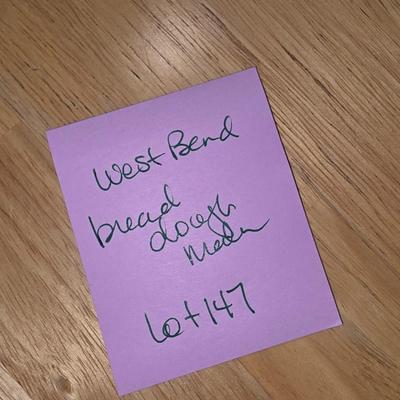 West Bend
bread
dough
maker
Lot 147